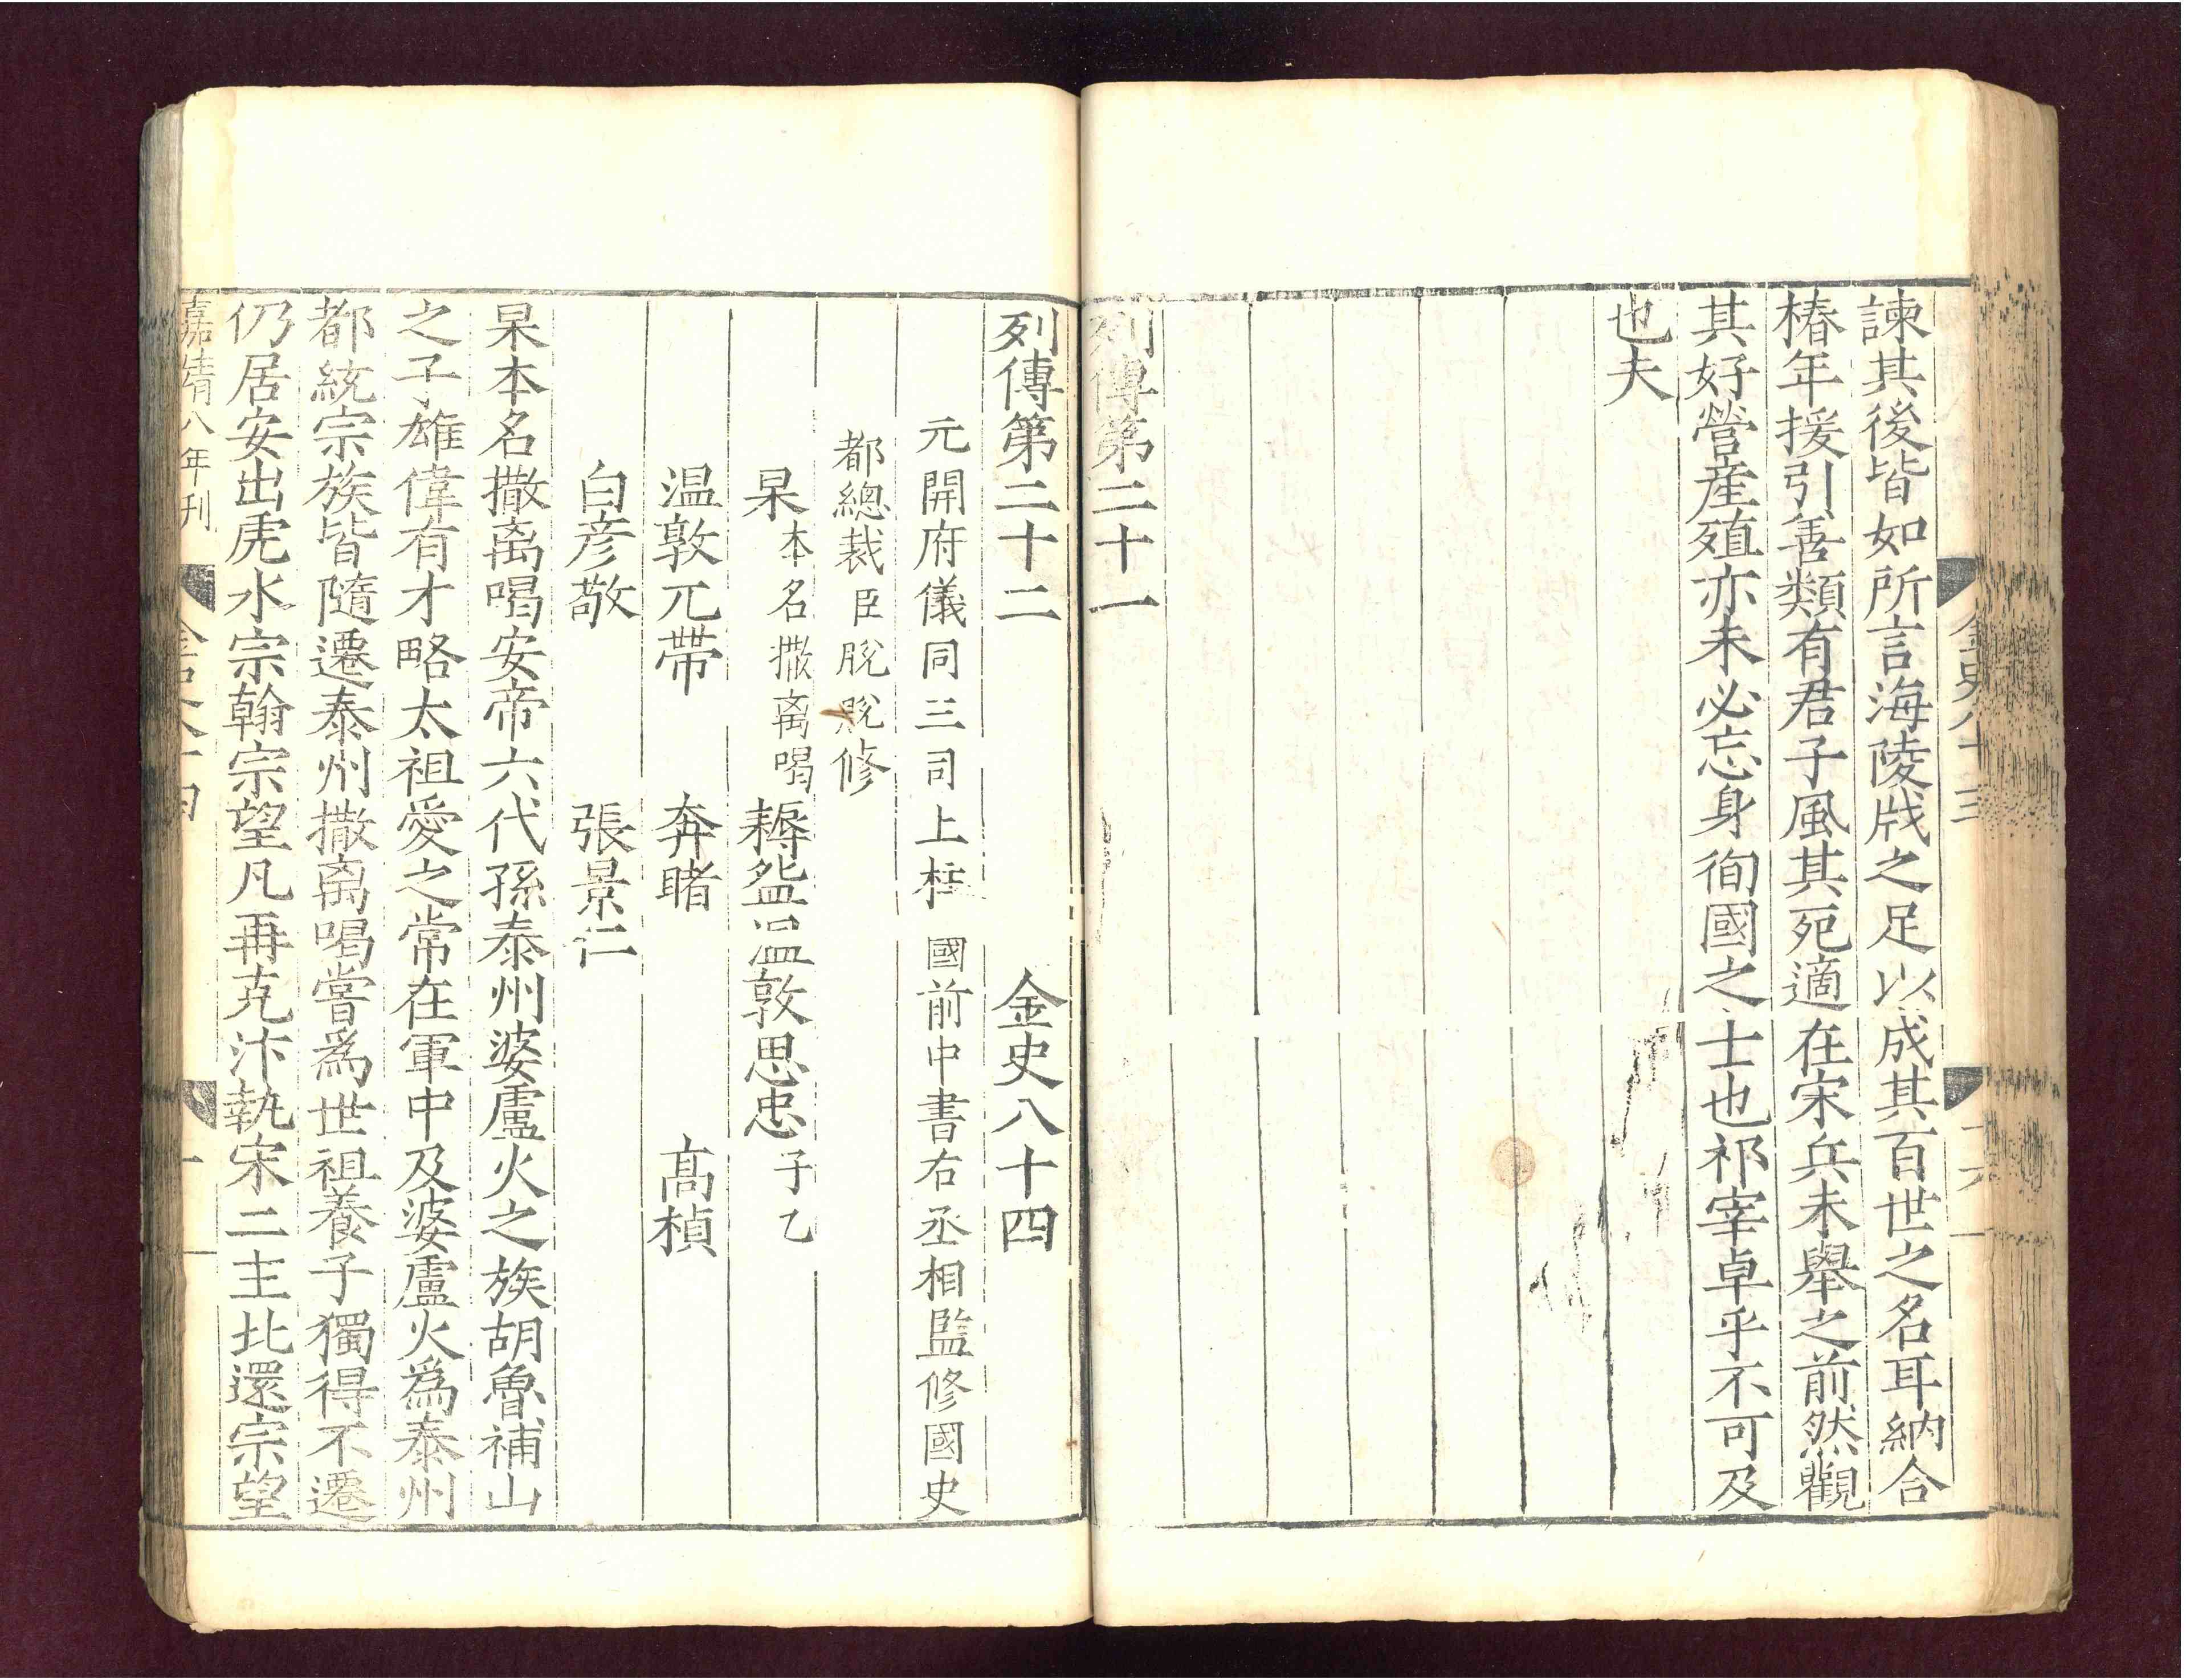 諫其後皆如所言海陵戕之足以成其百世之名耳納合
椿年援引善類有君子風其死適在宋兵未舉之前然觀
其好營産殖亦未必忘身徇國之士也祁宰卓乎不可及
也夫
列傳第二十一
列傳第二十二 金史八十四
元開府儀同三司上柱國前中書右丞相監修國史
都總裁臣脫脫修
杲本名撒离喝 耨盌温敦思忠子乙
温敦兀帶 奔睹 高楨
白彦敬 張景仁
杲本名撒离喝安帝六代孫泰州婆盧火之族胡魯補山
之子雄偉有才略太祖愛之常在軍中及婆盧火為泰州
都統宗族皆隨遷泰州撒离喝嘗為世祖養子獨得不遷
仍居安出虎水宗翰宗望凡再克汴執宋二主北還宗望
嘉靖八年刊